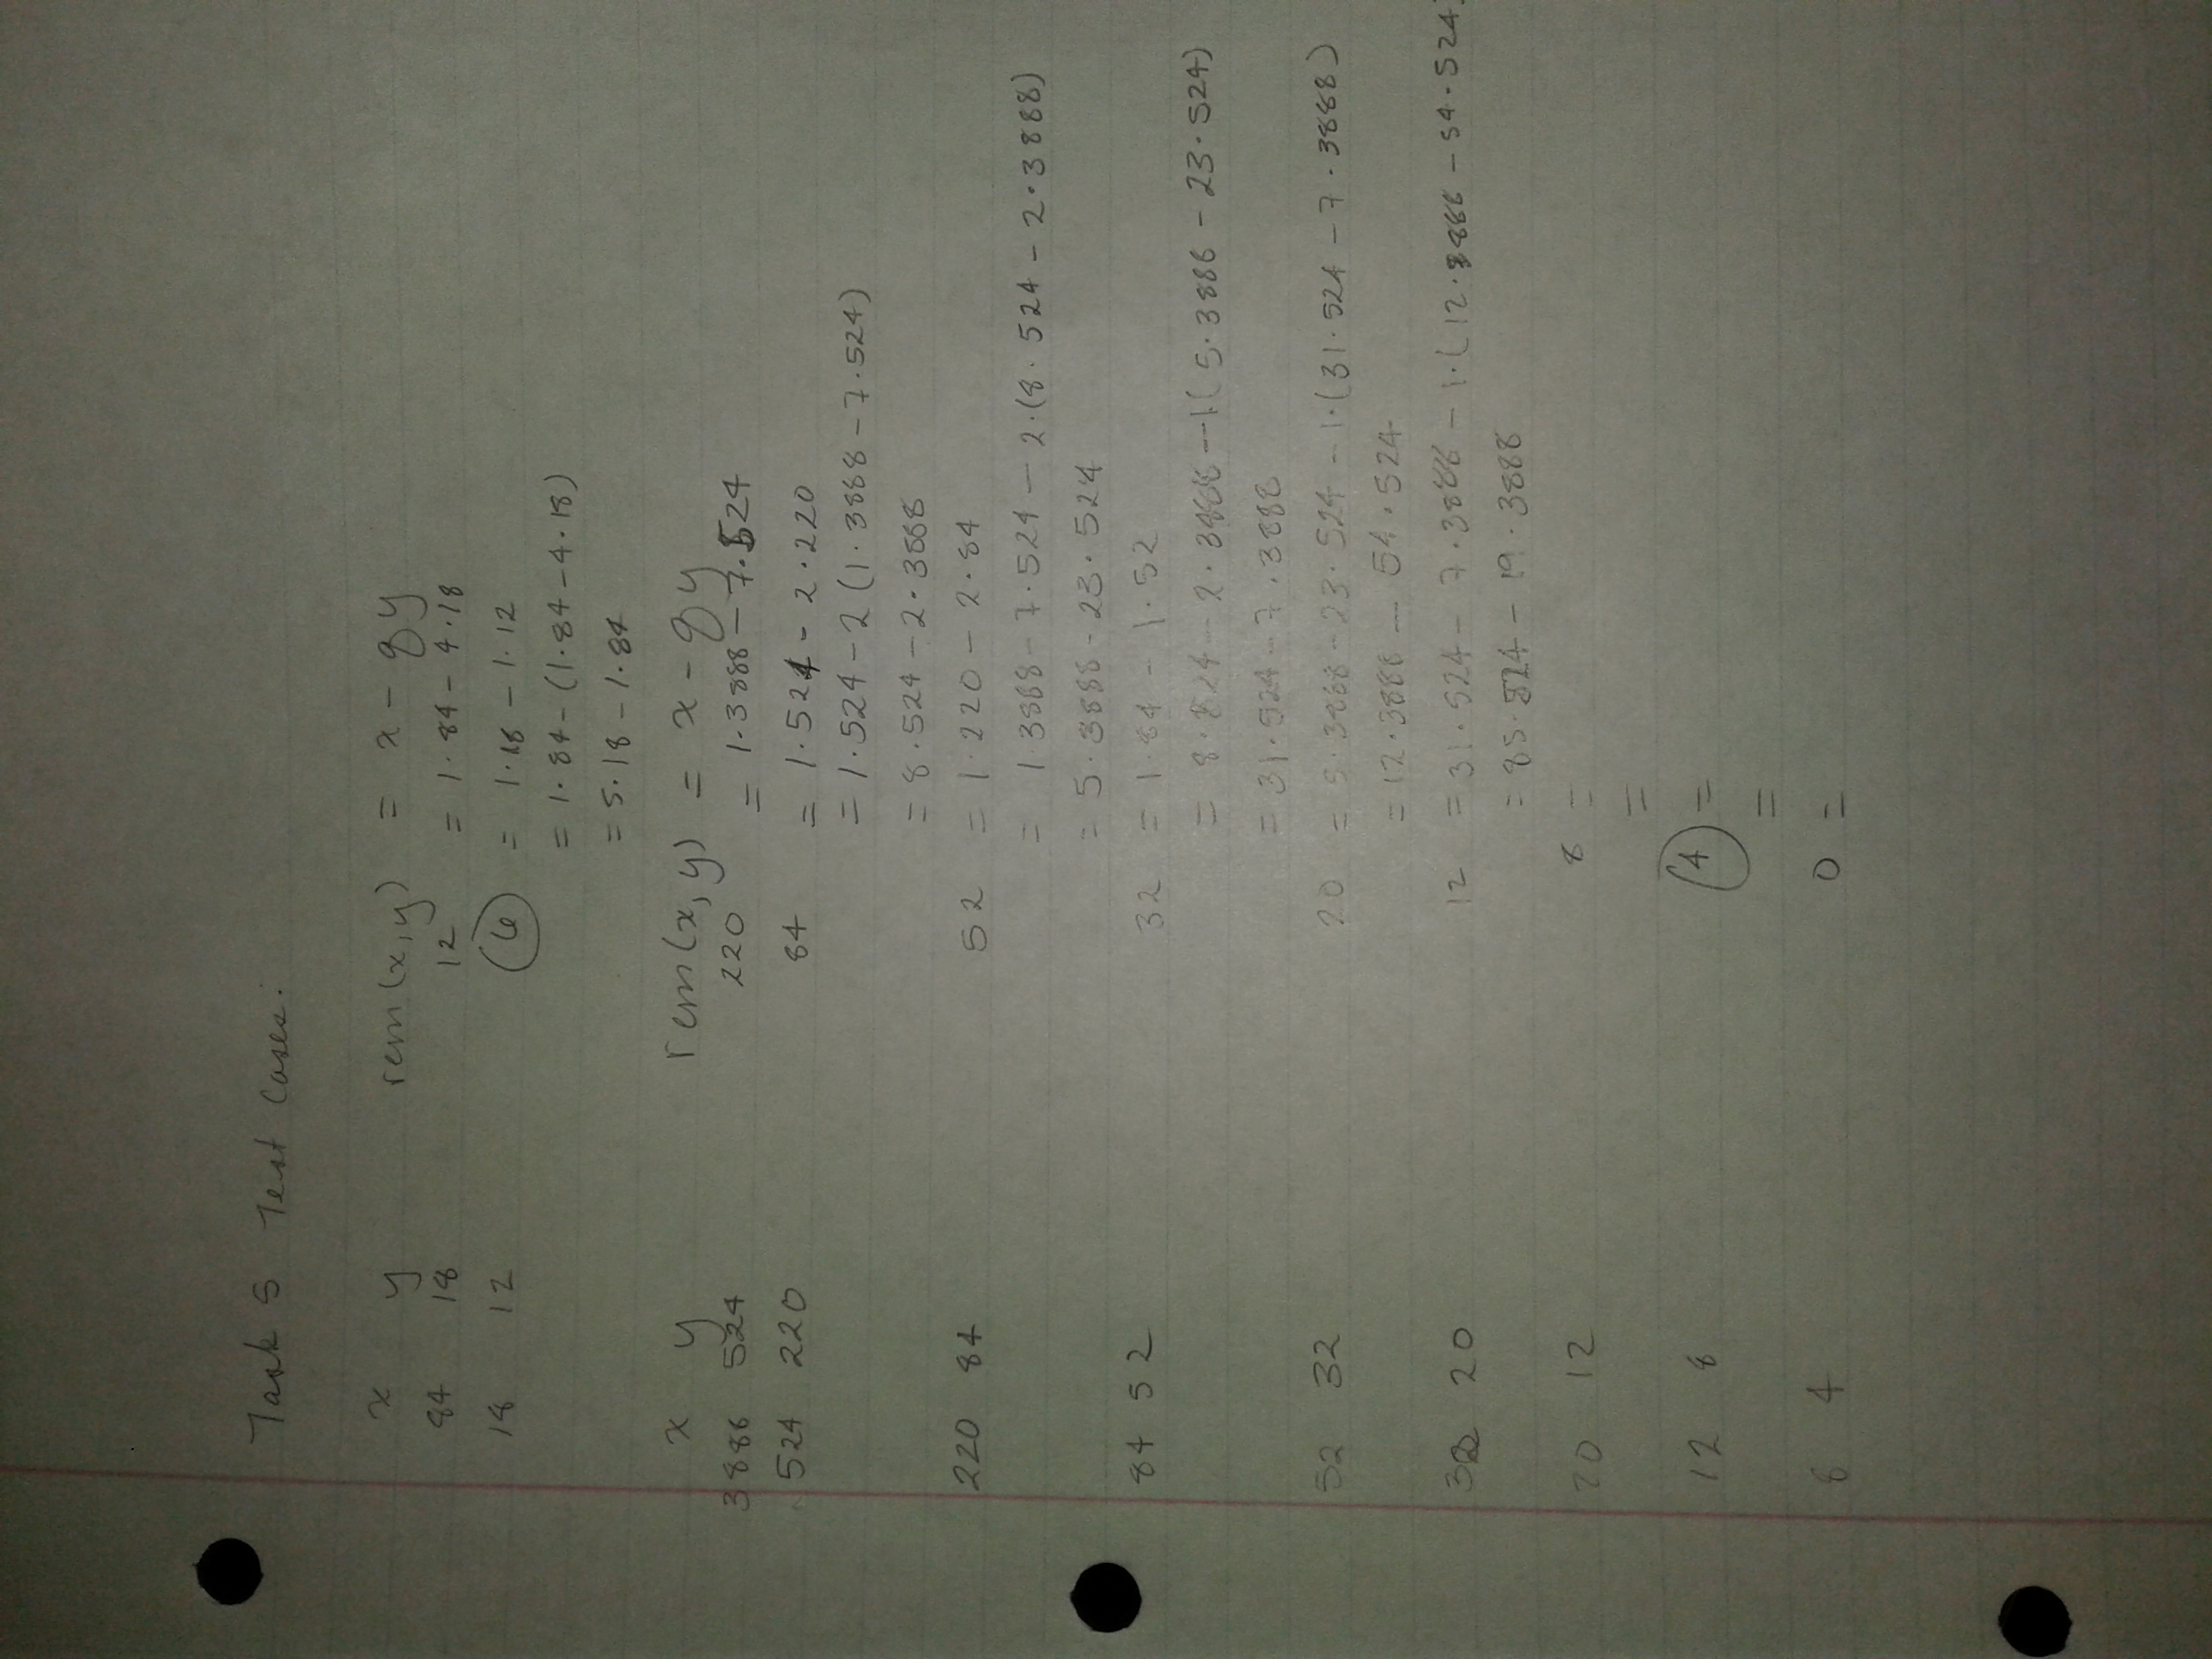 Task 5 Test Cases:
x y rem(x,y) = x - qy
84 18 12 = 1·84 - 4·18
18 12 6 = 1·18 - 1·12
= 1·84 - (1·84 - 4·18)
= 5·18 - 1·84
x y rem(x,y) = x - qy
3888 524 220 = 1·3888 - 7·524
524 220 84 = 1·524 - 2·220
= 1·524 - 2(1·3888 - 7·524)
= 8·524 - 2·3888
220 84 52 = 1·220 - 2·84
= 1·3888 - 7·524 - 2·(8·524 - 2·3888)
= 5·3888 - 23·524
84 52 32 = 1·84 - 1·52
= 8·524 - 2·3888 - 1(5·3888 - 23·524)
= 31·524 - 7·3888
52 32 20 = 5·3888 - 23·524 - 1·(31·524 - 7·3888)
= 12·3888 - 54·524
32 20 12 = 31·524 - 7·3888 - 1·(12·3888 - 54·524)
= 85·524 - 19·3888
20 12 8 =
=
12 8 4 =
=
8 4 0 =